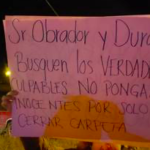 Sr Obrador y Dura
Busquen los VERDAD
ULPABLES NO PONGA
INOCENTES POR SOLO
CERRAR CARPETA